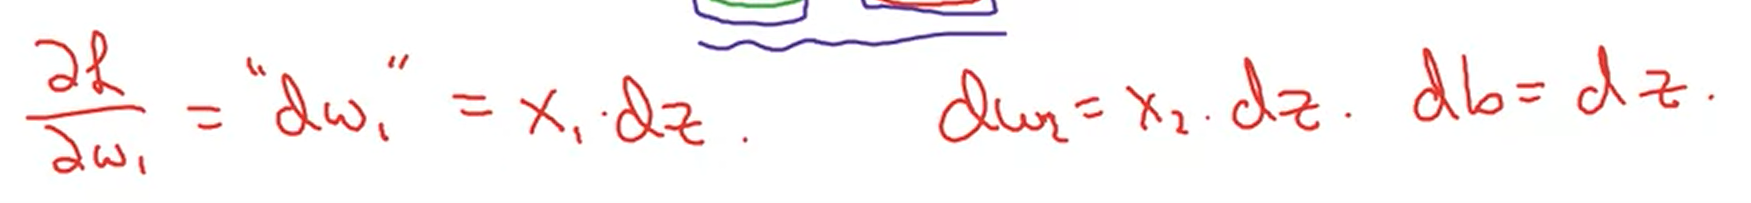 ∂L/∂w₁ = "dw₁" = x₁ · dz. dw₂ = x₂ · dz. db = dz.